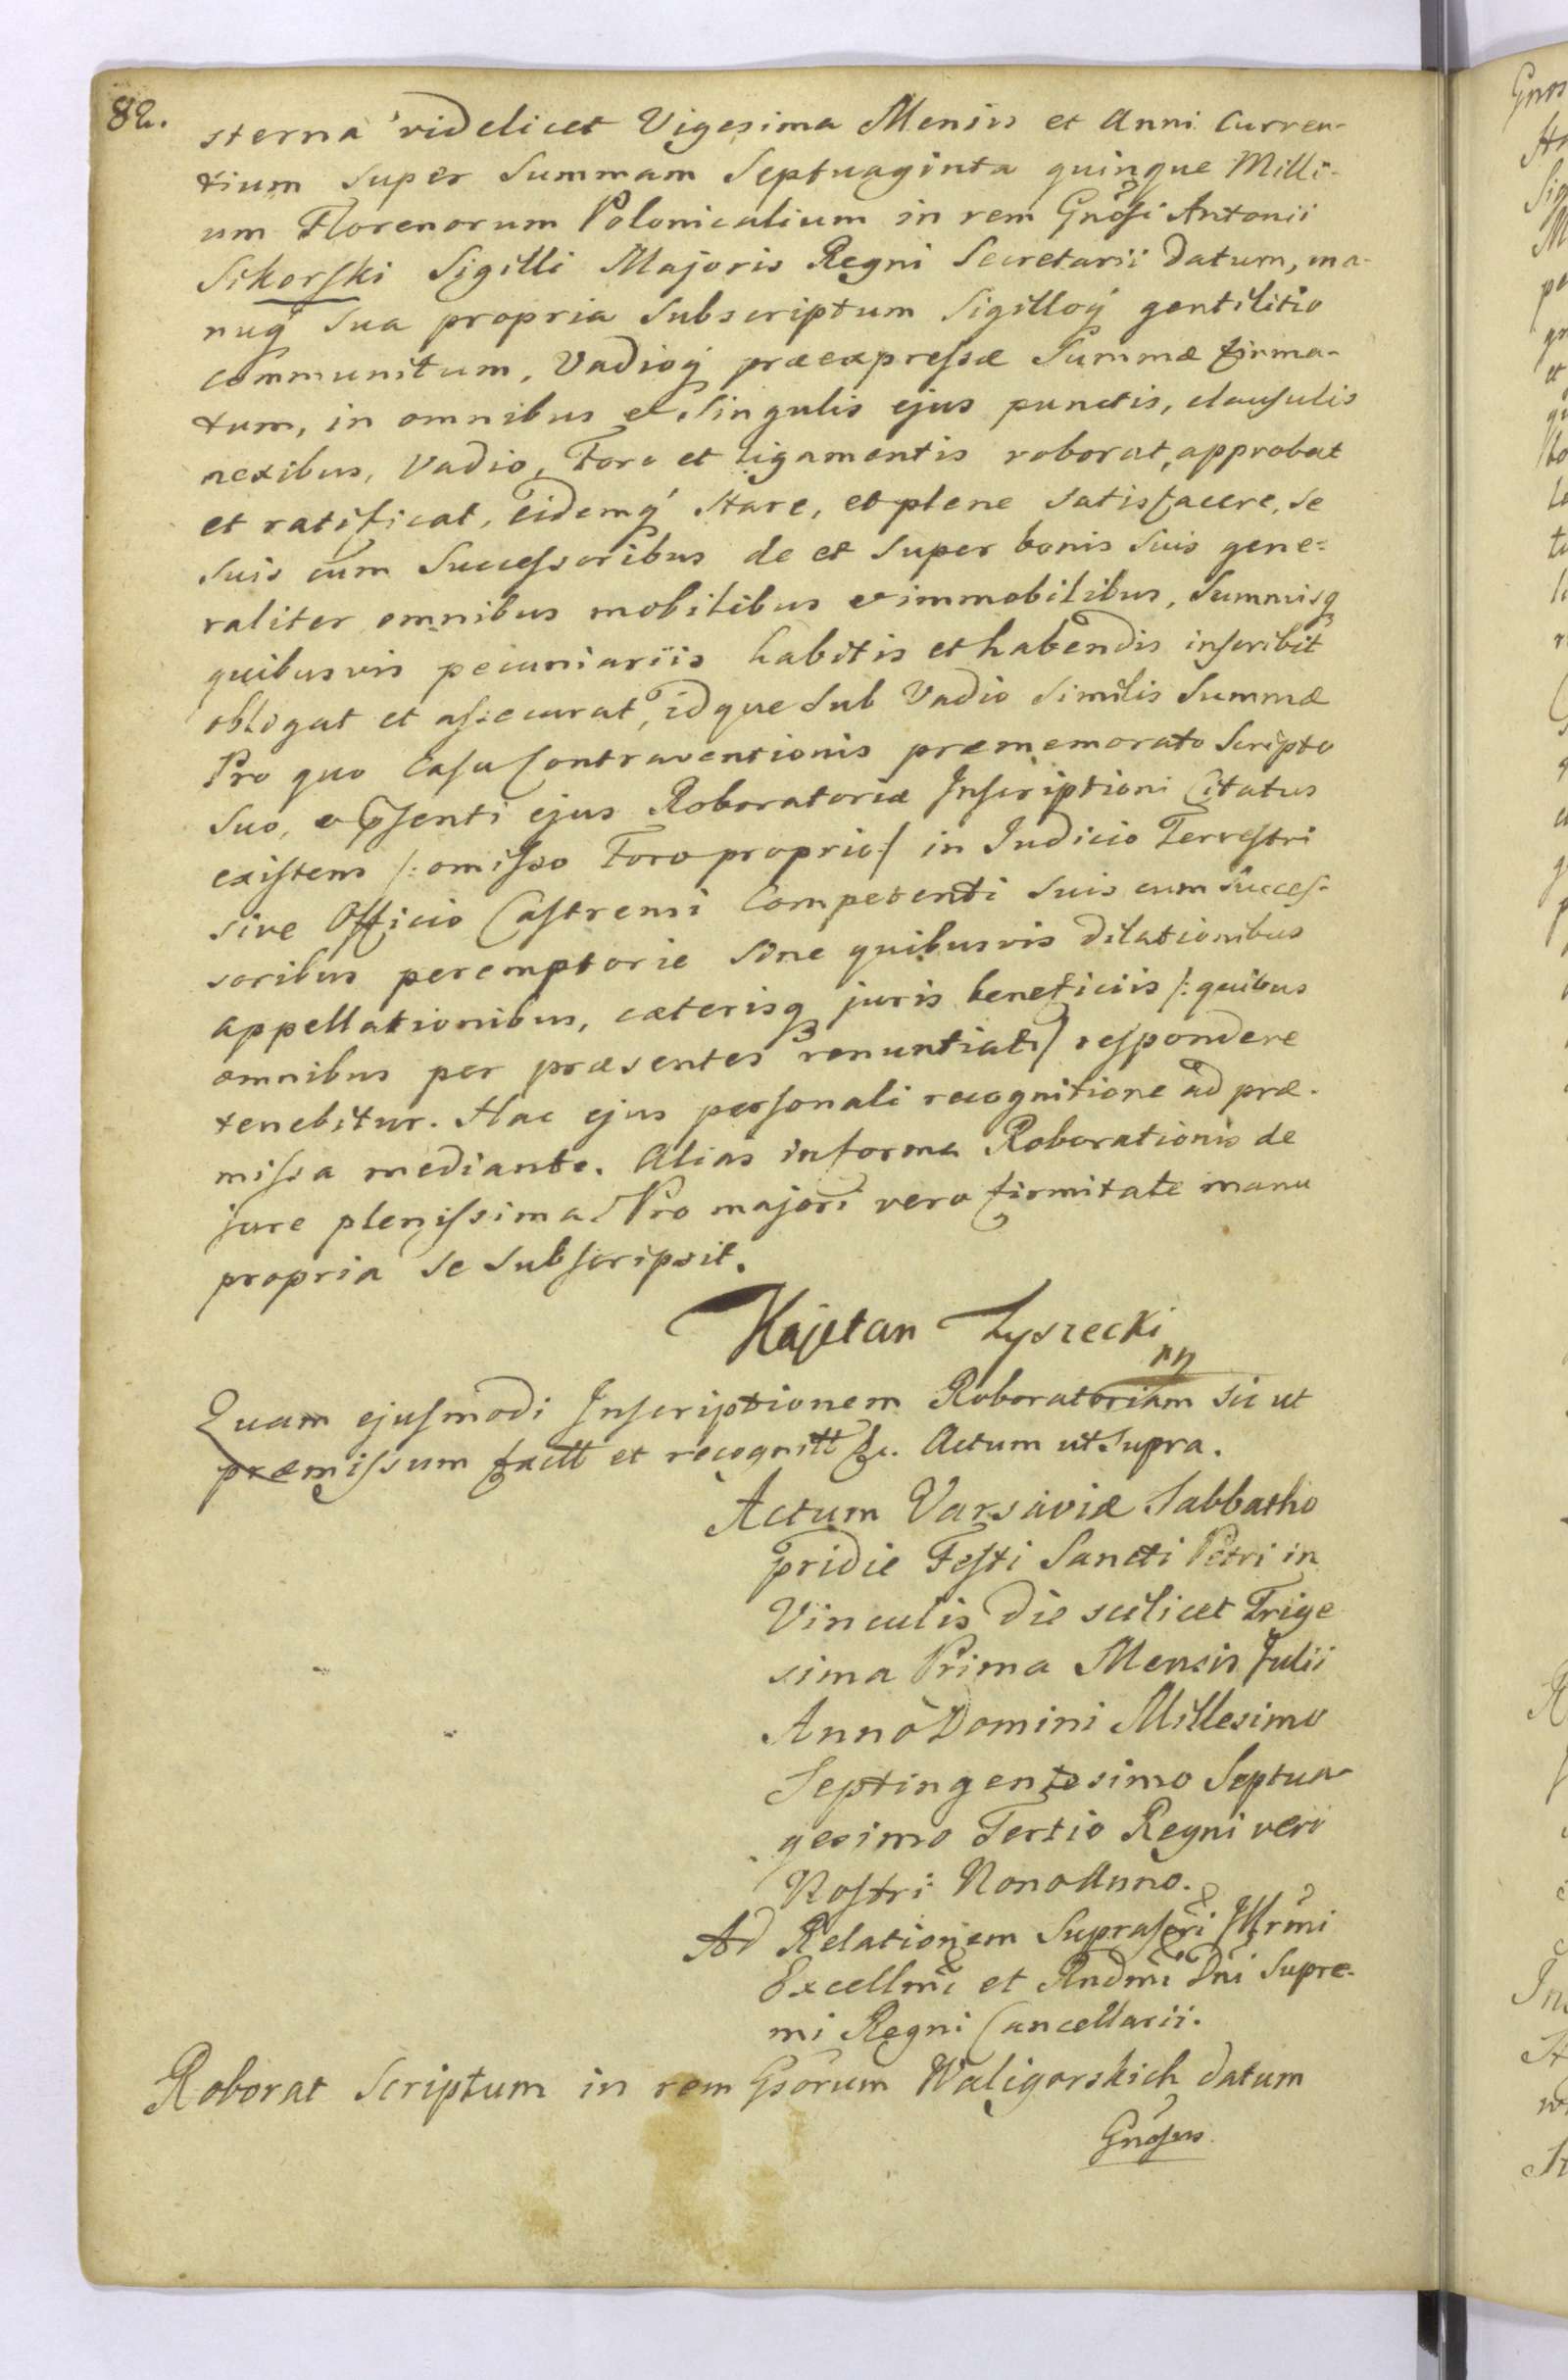 82.
sterna videlicet Vigesima Mensis et Anni Curren-
tium super Summam Septuaginta quinque Milli-
um Florenorum Polonicalium in rem Gnosi Antonii
Sikorski Sigilli Majoris Regni Secretarii datum, ma-
nuq sua propria Subscriptum Sigilloq gentilitio
communitum, Vadioq præexpressæ Summæ firma-
tum, in omnibus et Singulis ejus punctis, clausulis
nexibus, Vadio, Foro et ligamentis roborat, approbat
et ratificat, Eidemq stare, et plene satisfacere, se
suis cum Successoribus de et super bonis suis gene-
raliter omnibus mobilibus et immobilibus, Summisq
quibusvis pecuniariis habitis et habendis inscribit
obligat et assecurat, idque sub Vadio similis Summæ
Pro quo Casu Contraventionis præmemorato Scripto
suo, et pſenti ejus Roboratoriæ Inscriptioni Citatus
existens /: omisso Foro proprio :/ in Judicio Terrestri
sive Officio Castrensi Competenti suis cum succes-
soribus peremptorie sine quibusvis dilationibus
appellationibus, cæterisq juris beneficiis /: quibus
omnibus per præsentes renuntiat :/ respondere
tenebitur. Hac ejus personali recognitione ad præ-
missa mediante. Alias in forma Roborationis de
jure plenissima. Pro majori vero firmitate manu
propria se subscripsit.
Kajetan Łyszecki
mp
Quam ejusmodi Inscriptionem Roboratoriam sic ut
præmissum factt et recognitt &c. Actum ut supra.
Actum Varsaviæ Sabbatho
pridie Festi Sancti Petri in
Vinculis die scilicet Trige
sima Prima Mensis Julii
Anno Domini Millesimo
Septingentesimo Septua-
gesimo Tertio Regni vero
Nostri Nono Anno.
Ad Relationem Suprascri Illrmi
Excellmi et Rndmi Dni Supre-
mi Regni Cancellarii.
Roborat Scriptum in rem Gsorum Waligorskich datum
Gnosus